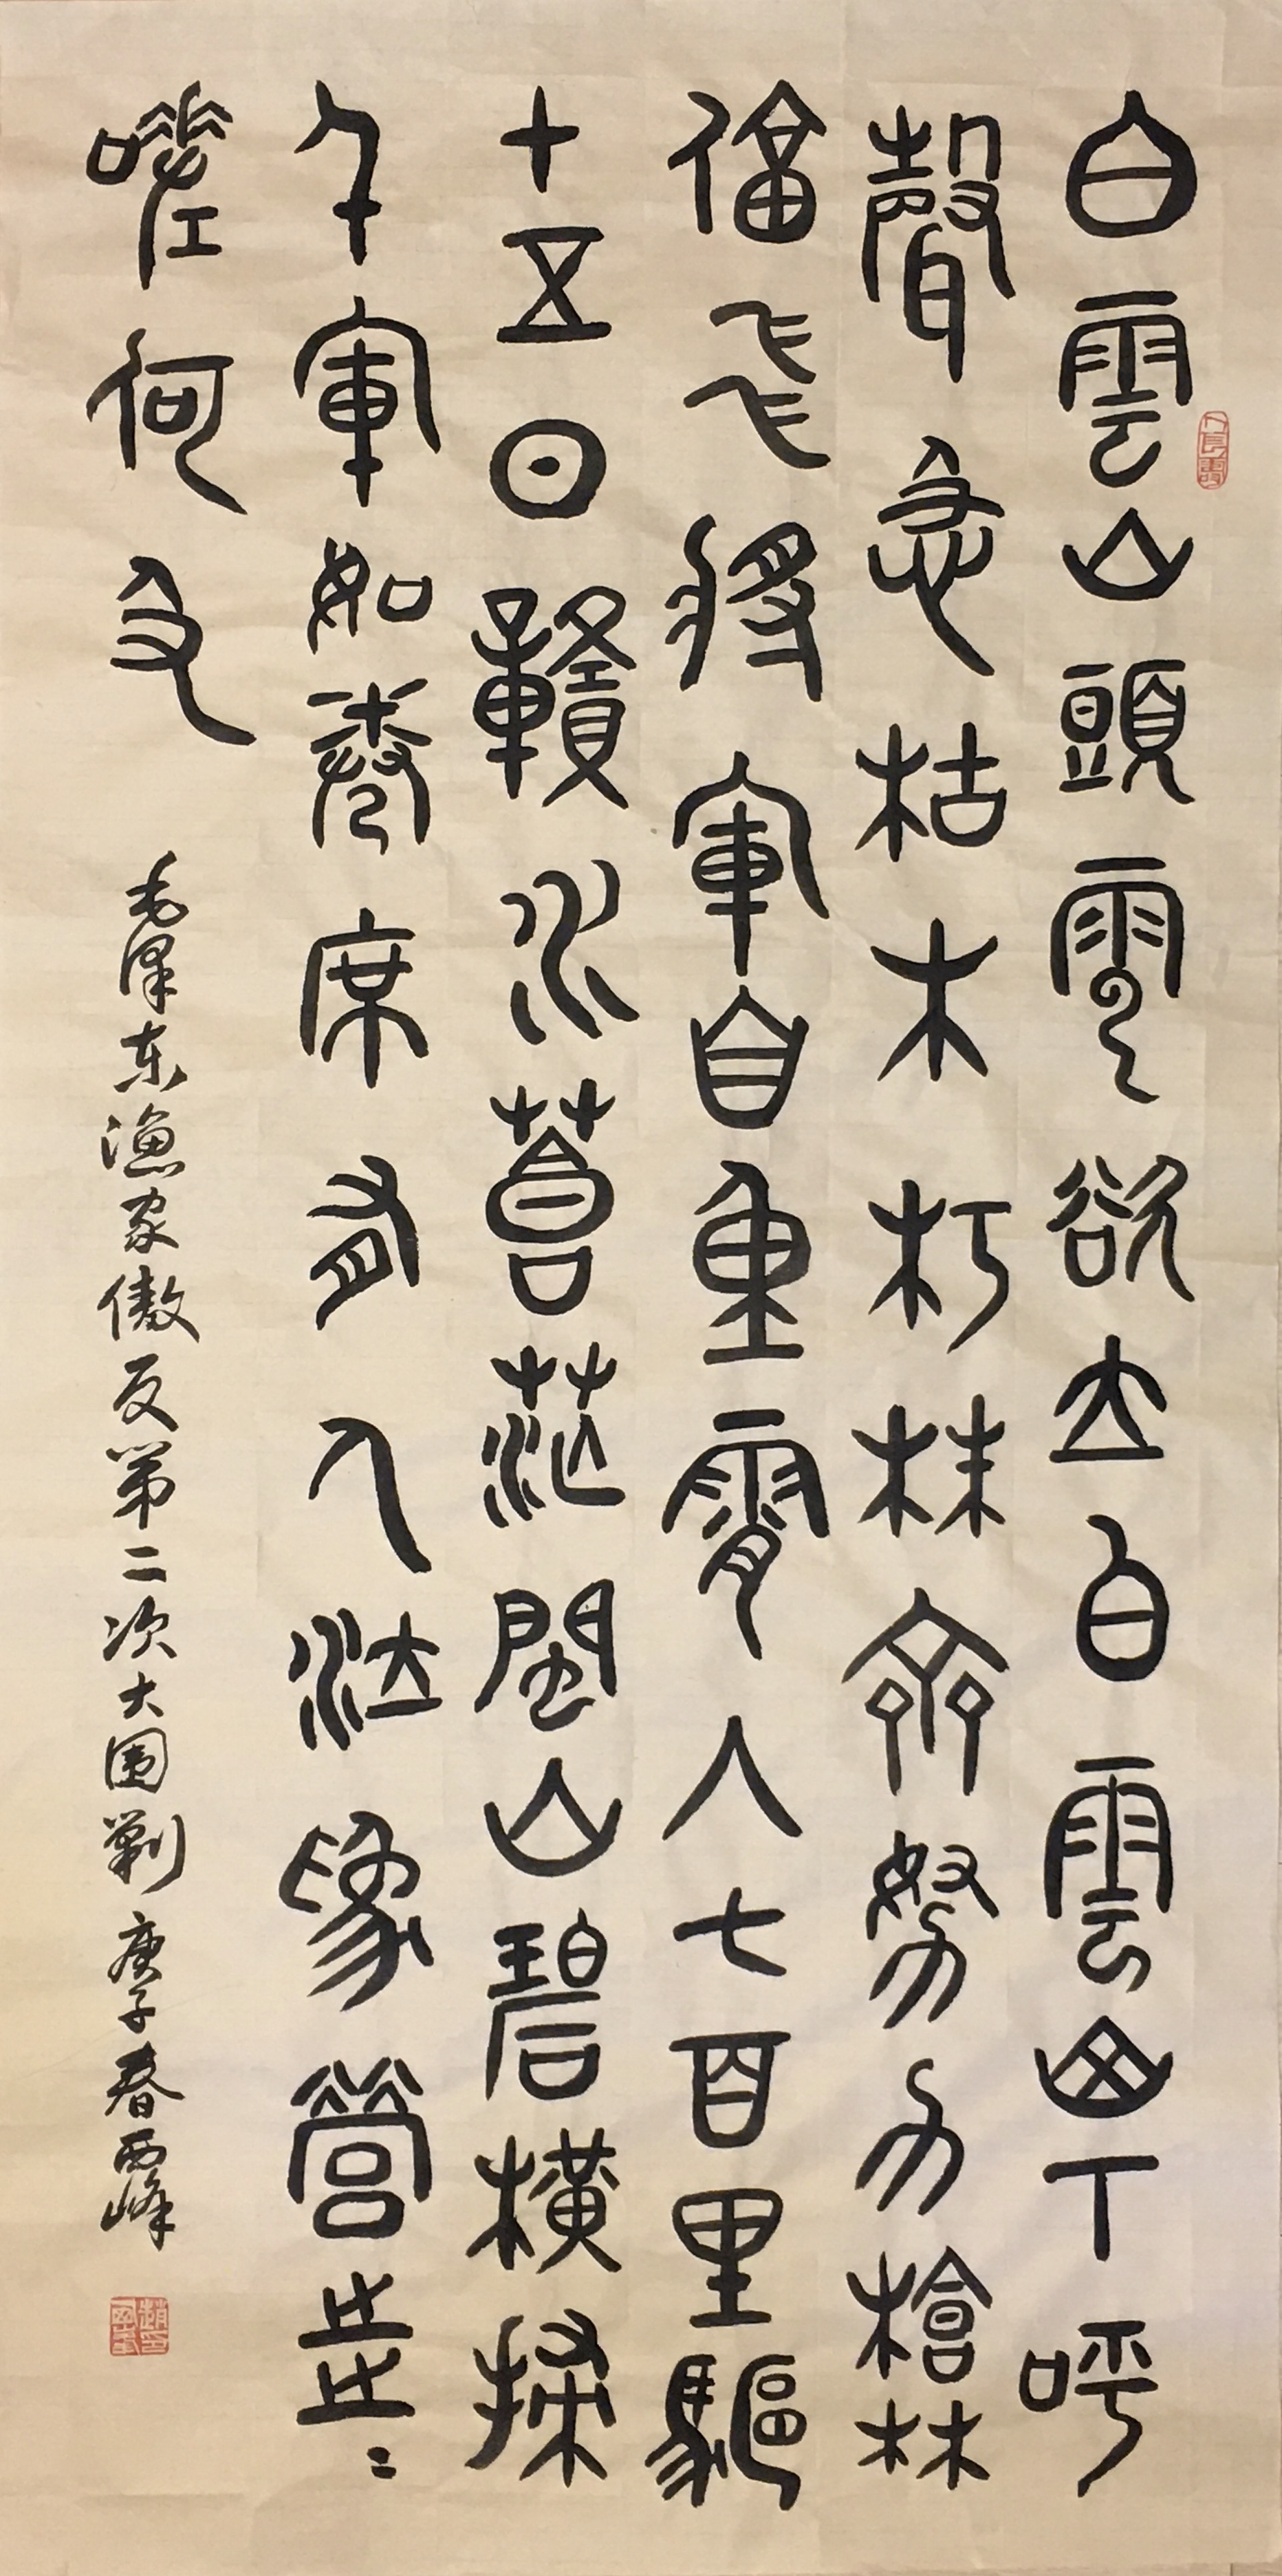 白雲山頭雲欲立白雲山下呼
聲急枯木朽株齊努力槍林
偪飛將軍自重霄入七百里驅
十五日贛水蒼茫閩山碧橫掃
千軍如卷席有人泣為營步〻
嗟何及
毛泽东漁家傲反第二次大围剿 庚子春西峰
人長壽